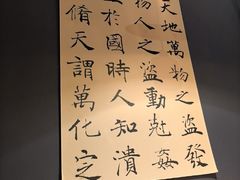 天地萬物之盜發
物人之盜動尅姦
於國時人知潰
脩天謂萬化定